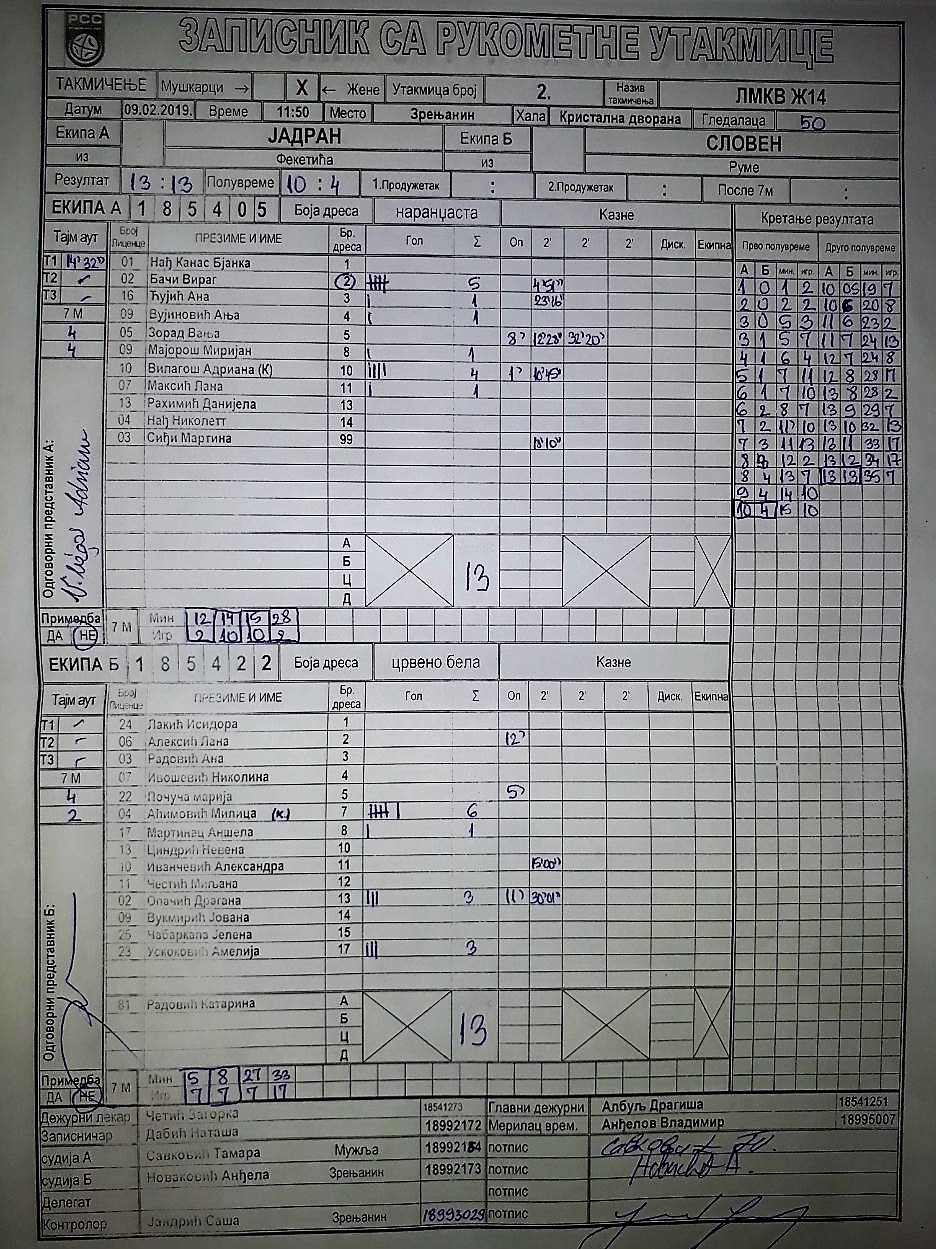 РСС
ЗАПИСНИК СА РУКОМЕТНЕ УТАКМИЦЕ
ТАКМИЧЕЊЕ Мушкарци → X ← Жене Утакмица број 2. Назив такмичења ЛМКВ Ж14
Датум 09.02.2019. Време 11:50 Место Зрењанин Хала Кристална дворана Гледалаца 50
Екипа А ЈАДРАН Екипа Б СЛОВЕН
из Фекетића из Руме
Резултат 13 : 13 Полувреме 10 : 4 1.Продужетак : 2.Продужетак : После 7м :
ЕКИПА А 1 8 5 4 0 5 Боја дреса наранџаста Казне Кретање резултата
Тајм аут Број Лиценце ПРЕЗИМЕ И ИМЕ Бр. дреса Гол Σ Оп 2' 2' 2' Диск. Екипна Прво полувреме Друго полувреме
А Б мин. игр. А Б мин. игр.
Т1 14'32" 01 Нађ Канас Бјанка 1
Т2 02 Бачи Вираг 2 5
Т3 16 Ћујић Ана 3 1 23'16"
7 М 09 Вујиновић Ања 4 1
4 05 Зорад Вања 5 8' 12'28" 32'20"
4 09 Мајорош Миријан 8 1
10 Вилагош Адриана (К) 10 4 1'
07 Максић Лана 11 1
13 Рахимић Данијела 13
04 Нађ Николетт 14
03 Сиђи Мартина 99
1 0 1 2 10 5 19 7
2 0 2 2 10 6 20 8
3 0 5 3 11 6 23 2
3 1 5 7 11 7 24 13
4 1 6 4 12 7 24 8
5 1 7 11 12 8 28 17
6 1 7 10 13 8 28 2
6 2 8 7 13 9 29 7
7 2 11 10 13 10 32 13
7 3 11 13 13 11 33 17
8 3 12 2 13 12 34 17
8 4 13 7 13 13 35 7
9 4 14 10
10 4 15 10
Одговорни представник А:
А
Б
Ц
Д
13
Примедба ДА НЕ 7 М Мин 12 14 15 28
Игр 2 10 10 2
ЕКИПА Б 1 8 5 4 2 2 Боја дреса црвено бела Казне
Тајм аут Број Лиценце ПРЕЗИМЕ И ИМЕ Бр. дреса Гол Σ Оп 2' 2' 2' Диск. Екипна
Т1 24 Лакић Исидора 1
Т2 06 Алексић Лана 2 12'
Т3 03 Радовић Ана 3
7 М 07 Ивошевић Николина 4
4 22 Почуча марија 5 5'
2 04 Аћимовић Милица (К) 7 6
17 Мартинац Аншела 8 1
13 Циндрић Невена 10
10 Иванчевић Александра 11 15'00"
11 Честић Миљана 12
02 Опачић Драгана 13 3 11' 30'01"
09 Вукмирић Јована 14
25 Чабаркапа Јелена 15
23 Ускоковић Амелија 17 3
Одговорни представник Б:
81 Радовић Катарина А
Б
Ц
Д
13
Примедба ДА НЕ 7 М Мин 5 8 27 33
Игр 7 7 7 17
Дежурни лекар Четић Загорка 18541273 Главни дежурни Албуљ Драгиша 18541251
Записничар Дабић Наташа 18992172 Мерилац врем. Анђелов Владимир 18995007
судија А Савковић Тамара Мужља 18992184 потпис
судија Б Новаковић Анђела Зрењанин 18992173 потпис
Делегат потпис
Контролор Јандрић Саша Зрењанин 18993029 потпис